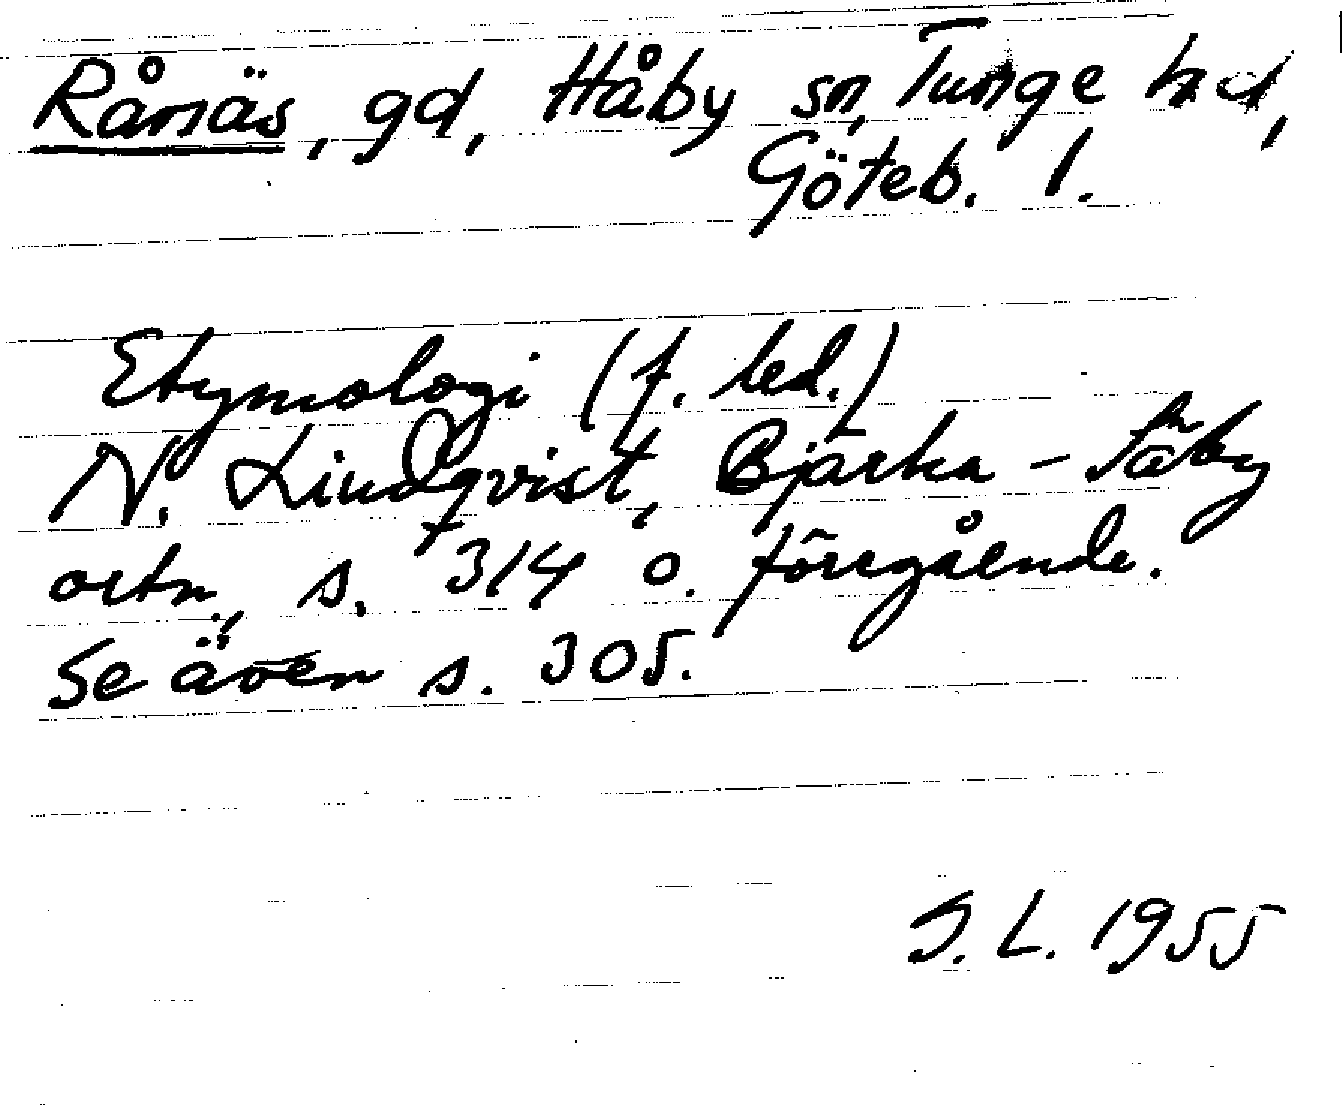 Rånäs, gd, Håby sn, Tunge hd,
Göteb. l.
Etymologi (f. led.)
N. Lindqvist, Bjärka-Säby
ortn., s. 314 o. föregående.
Se även s. 305.
I. L. 1955